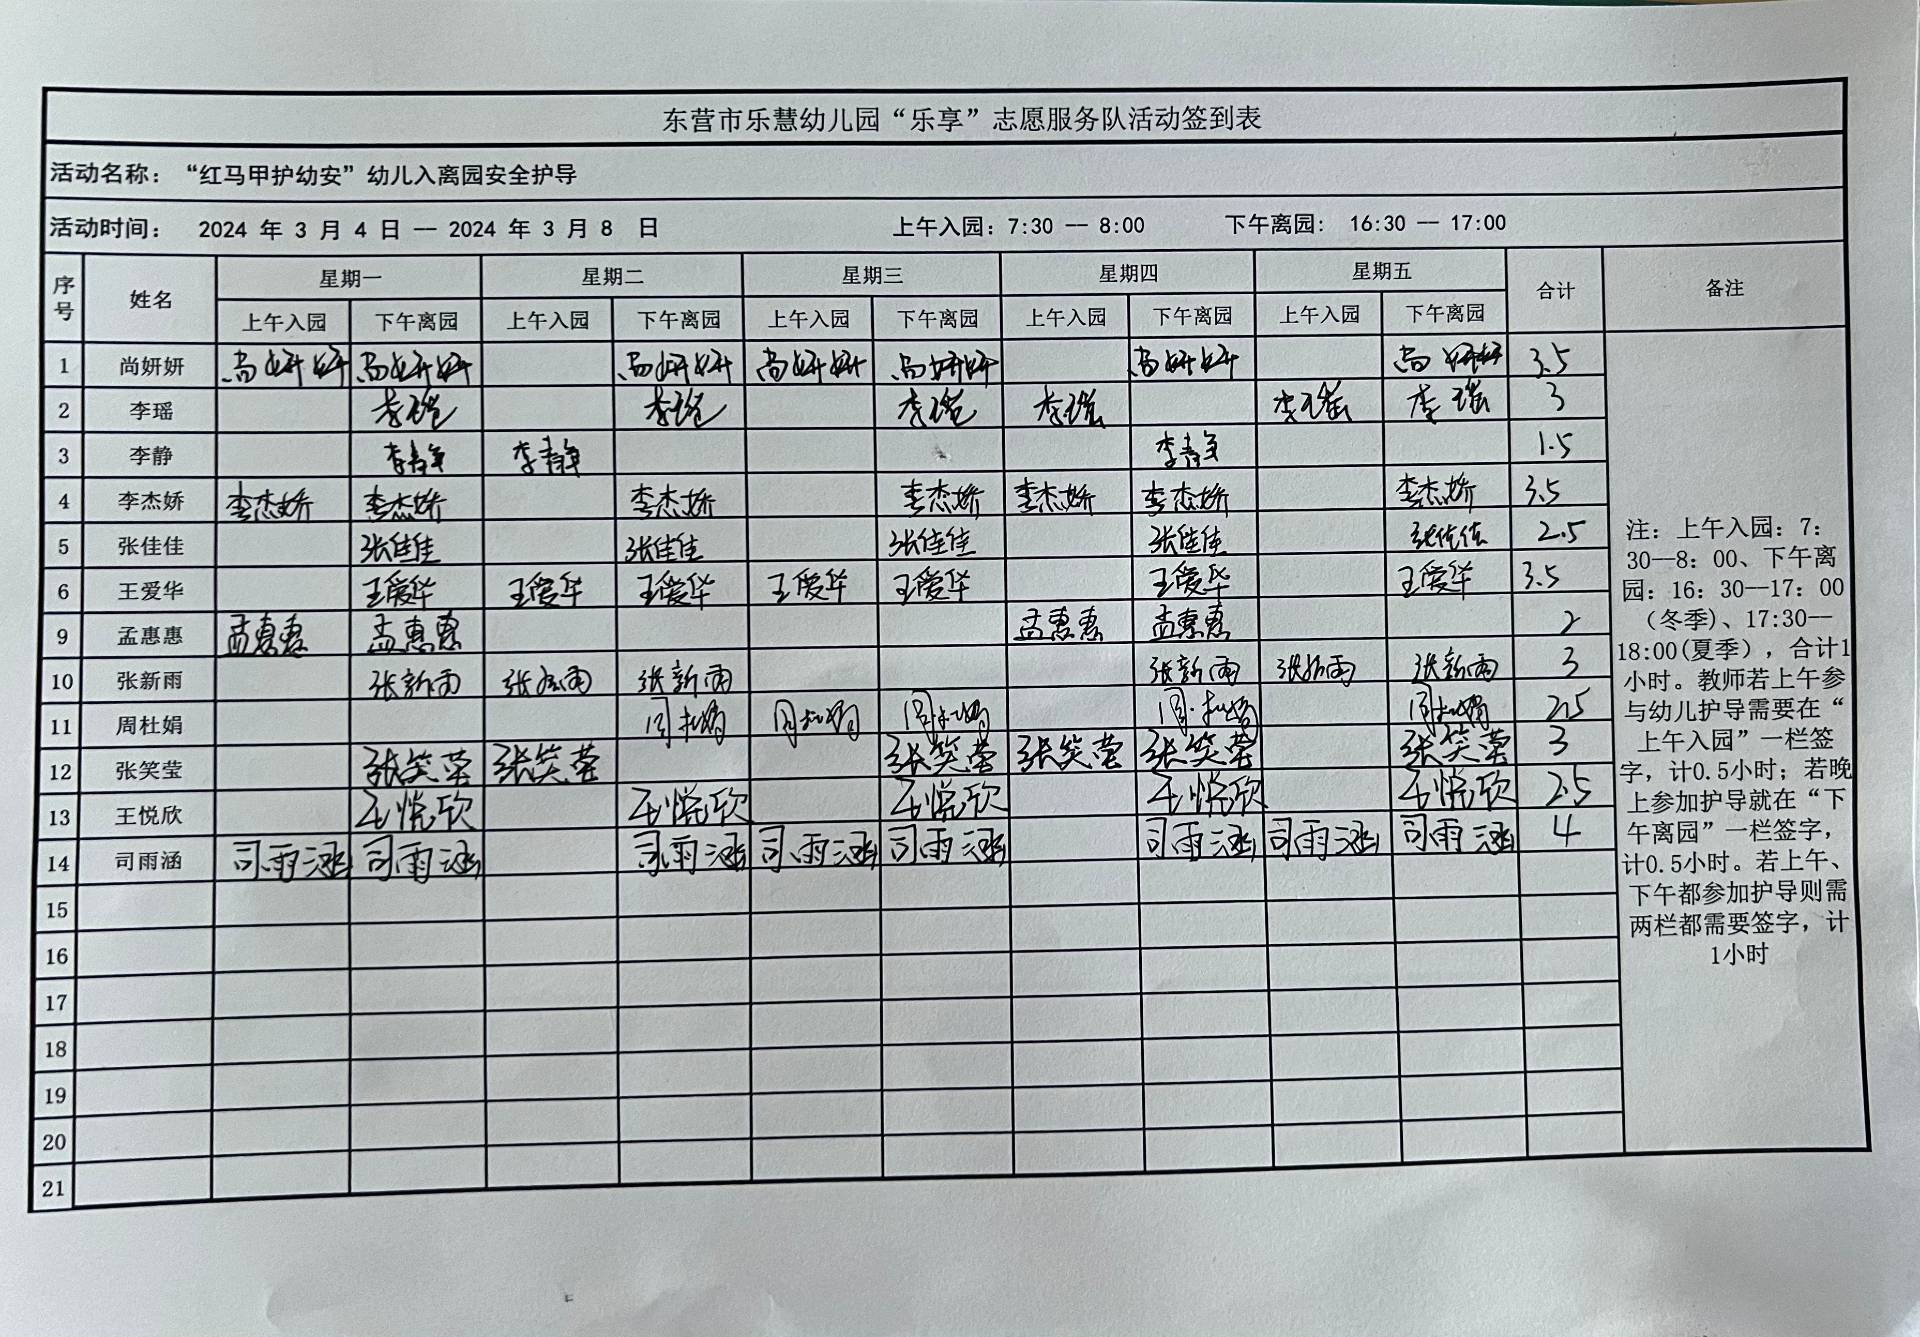 东营市乐慧幼儿园“乐享”志愿服务队活动签到表
活动名称：“红马甲护幼安”幼儿入离园安全护导
活动时间： 2024 年 3 月 4 日 -- 2024 年 3 月 8 日 上午入园：7:30 -- 8:00 下午离园： 16:30 -- 17:00
序号 姓名 星期一 星期二 星期三 星期四 星期五 合计 备注
上午入园 下午离园 上午入园 下午离园 上午入园 下午离园 上午入园 下午离园 上午入园 下午离园
1 尚妍妍 尚妍妍 尚妍妍 尚妍妍 尚妍妍 尚妍妍 尚妍妍 尚妍妍 3.5
2 李瑶 李瑶 李瑶 李瑶 李瑶 李瑶 李瑶 3
3 李静 李静 李静 李静 1.5
4 李杰娇 李杰娇 李杰娇 李杰娇 李杰娇 李杰娇 李杰娇 李杰娇 3.5
5 张佳佳 张佳佳 张佳佳 张佳佳 张佳佳 张佳佳 2.5
6 王爱华 王爱华 王爱华 王爱华 王爱华 王爱华 王爱华 王爱华 3.5
9 孟惠惠 孟惠惠 孟惠惠 孟惠惠 孟惠惠 2
10 张新雨 张新雨 张新雨 张新雨 张新雨 张新雨 张新雨 3
11 周杜娟 周杜娟 周杜娟 周杜娟 周杜娟 周杜娟 2.5
12 张笑莹 张笑莹 张笑莹 张笑莹 张笑莹 张笑莹 张笑莹 3
13 王悦欣 王悦欣 王悦欣 王悦欣 王悦欣 王悦欣 2.5
14 司雨涵 司雨涵 司雨涵 司雨涵 司雨涵 司雨涵 司雨涵 司雨涵 司雨涵 4
15
16
17
18
19
20
21
注：上午入园：7：
30--8：00、下午离
园：16：30--17：00
（冬季）、17:30--
18:00(夏季），合计1
小时。教师若上午参
与幼儿护导需要在“
上午入园”一栏签
字，计0.5小时；若晚
上参加护导就在“下
午离园”一栏签字，
计0.5小时。若上午、
下午都参加护导则需
两栏都需要签字，计
1小时